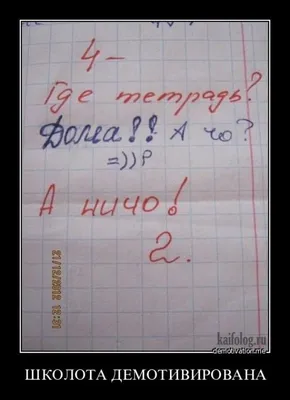 4-
Где тетрадь?
Дома!! А чо?
=))Р
А ничо!
2.
21/12/2012 12:31
kaifolog.ru
demotivation.me
ШКОЛОТА ДЕМОТИВИРОВАНА